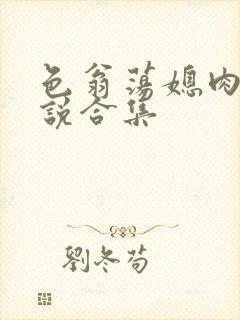 色翁荡媳肉
説合集
劉冬苟